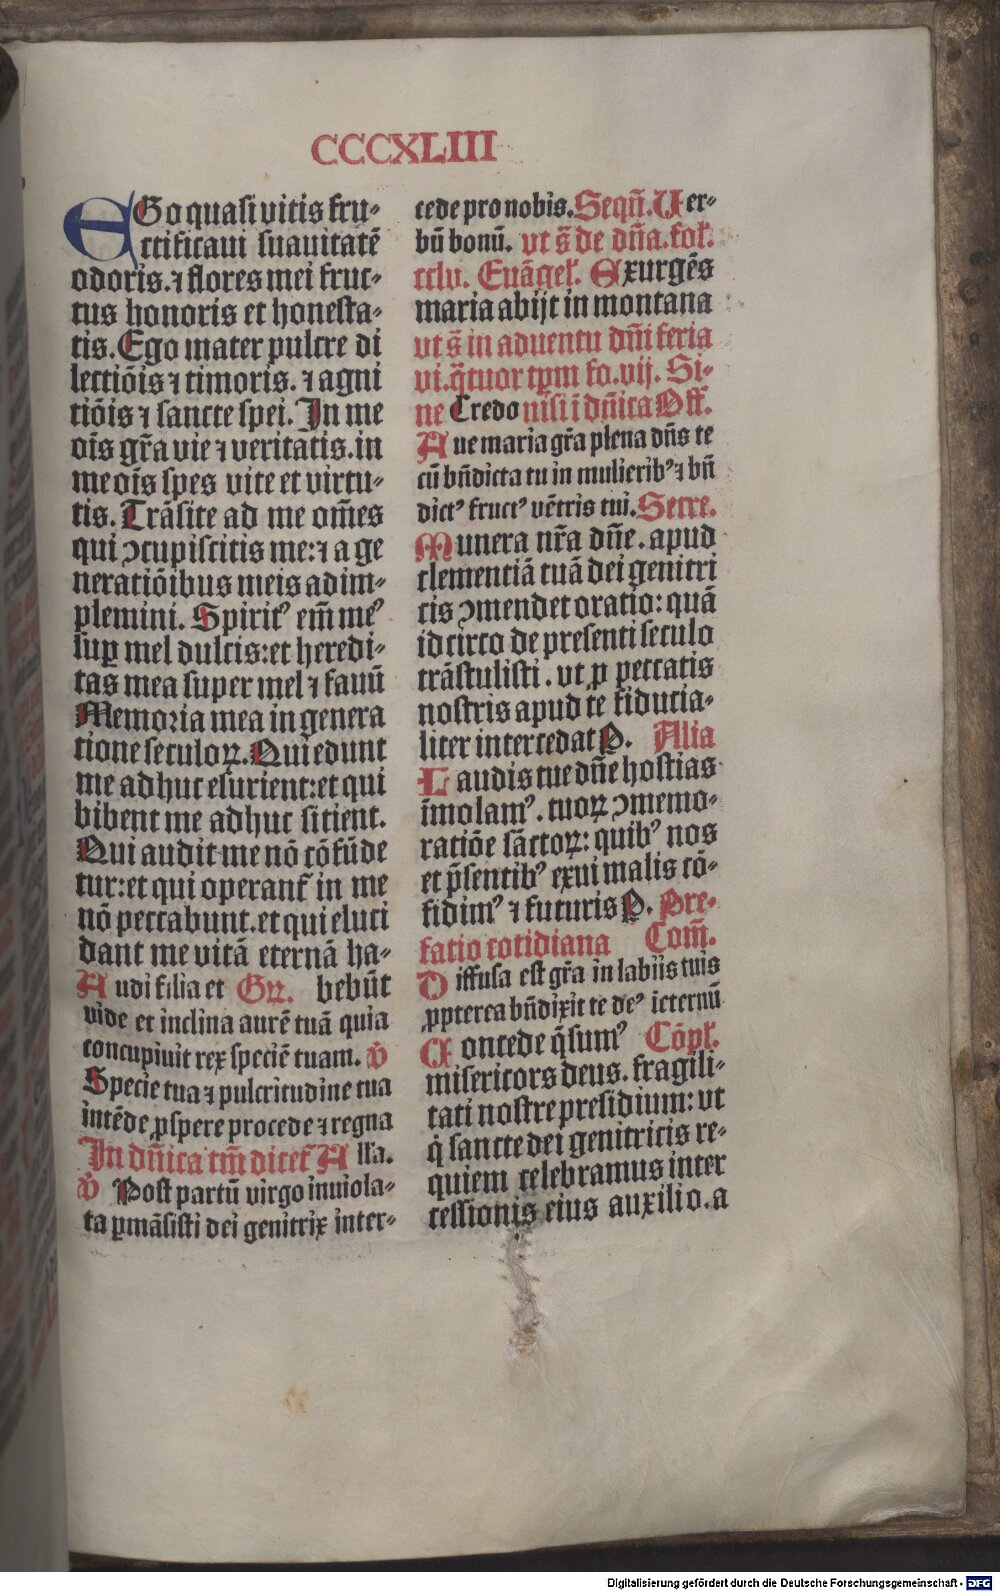 CCCXLIII
EGo quasi vitis fru-
ctificaui suauitatē
odoris. ⁊ flores mei fruc-
tus honoris et honesta-
tis. Ego mater pulcre di
lectiōis ⁊ timoris. ⁊ agni
tiōis ⁊ sancte spei. In me
oīs gr̄a vie ⁊ veritatis. in
me oīs spes vite et virtu-
tis. Trāsite ad me om̄es
qui ꝯcupiscitis me: ⁊ a ge
neratiōibus meis adim-
plemini. Spiritꝰ em̄ meꝰ
suꝑ mel dulcis: et heredi-
tas mea super mel ⁊ fauū
Memoria mea in genera
tione seculoꝝ. Qui edunt
me adhuc esurient: et qui
bibent me adhuc sitient.
Qui audit me nō cōfūde
tur: et qui operant̄ in me
nō peccabunt. et qui eluci
dant me vitā eternā ha-
Audi filia et Gꝛ. bebūt
vide et inclina aurē tuā quia
concupiuit rex speciē tuam. v̄
Specie tua ⁊ pulcritudine tua
intēde ꝓspere procede ⁊ regna
In dn̄ica tm̄ dicet̄ Alla.
v̄ Post partū virgo inuiola-
ta ꝑmāsisti dei genitrix inter-
cede pro nobis. Seqū. Uer-
bū bonū. vt s̄ de dn̄a. fol̄.
cclv. Euāgel̄. Exurgēs
maria abijt in montana
vt s̄ in aduentu dn̄i feria
vi. q̄tuor tp̄m fo. vij. Si-
ne Credo nisi ī dn̄ica Off.
Aue maria gr̄a plena dn̄s te
cū bn̄dicta tu in mulieribꝰ ⁊ bn̄
dictꝰ fructꝰ vētris tui. Secre.
Munera nr̄a dn̄e. apud
clementiā tuā dei genitri
cis ꝯmendet oratio: quā
idcirco de presenti seculo
trāstulisti. vt ꝓ peccatis
nostris apud te fiducia-
liter intercedat P. Alia
Laudis tue dn̄e hostias
īmolamꝰ. tuoꝝ ꝯmemo-
ratiōe sāctoꝝ: quibꝰ nos
et p̄sentibꝰ exui malis cō-
fidimꝰ ⁊ futuris P. Pre-
fatio cotidiana Com̄.
Diffusa est gr̄a in labiis tuis
ꝓpterea bn̄dixit te deꝰ ī eternū
Concede q̄sumꝰ Cōpl̄.
misericors deus. fragili-
tati nostre presidium: vt
q̇ sancte dei genitricis re-
quiem celebramus inter
cessionis eius auxilio. a
Digitalisierung gefördert durch die Deutsche Forschungsgemeinschaft - DFG